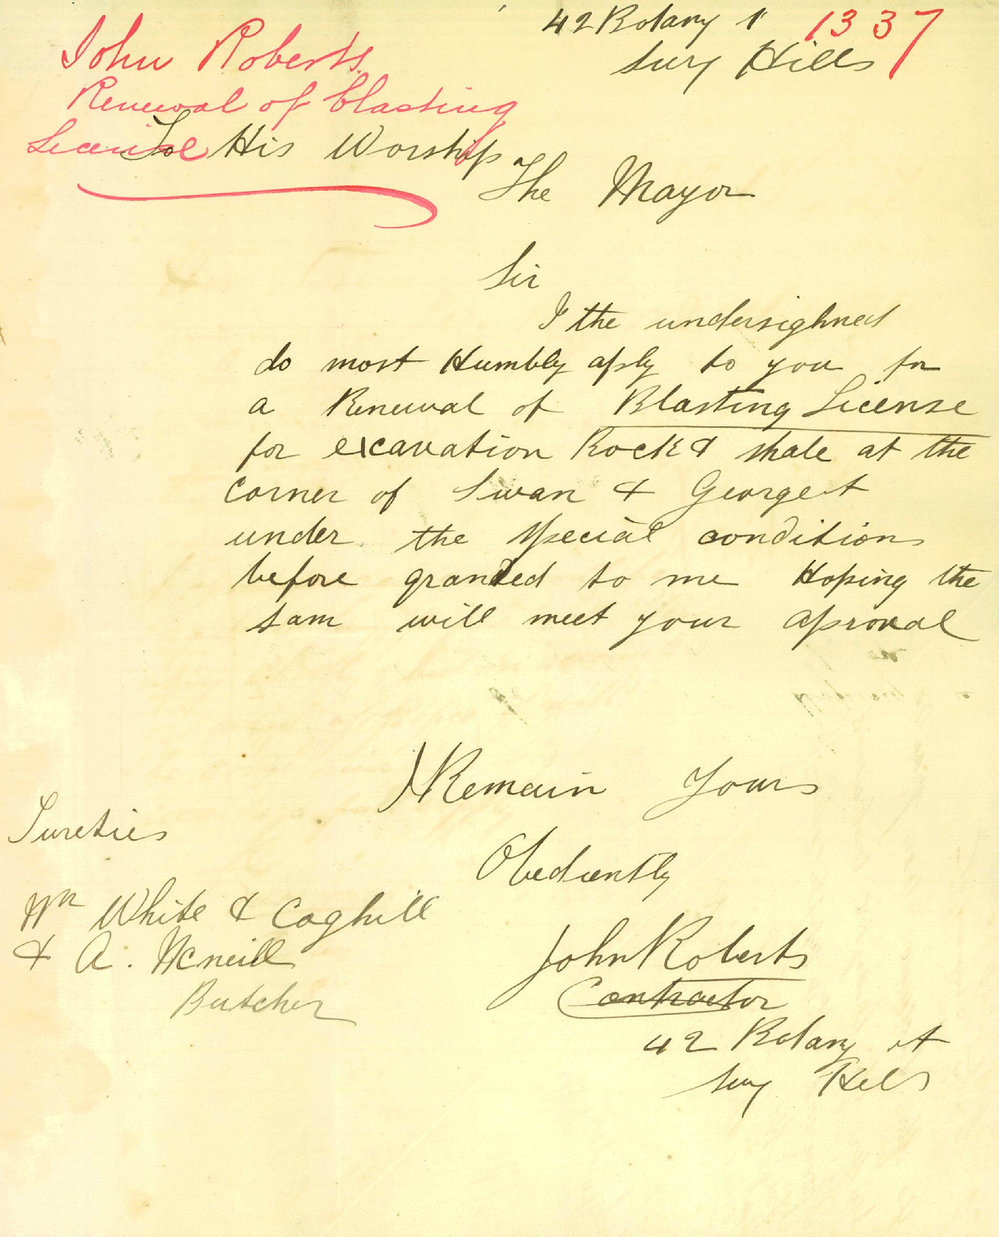 42 Botany
1337
Sury Hills
John Roberts
Renewal of blasting
License
To His Worship
The Mayor
Sir
I the undersighned
do most Humbly aply to you for
a Renewal of Blasting License
for excavation Rock & shale at the
corner of Swan & George st
under the special conditions
before granded to me Hoping the
sam will meet your aproval
I Remain Yours
Obediently
John Roberts
Contractor
42 Botany st
Sury Hils
Sureties
Wm White & Coghill
& A. Mcneill
Butcher